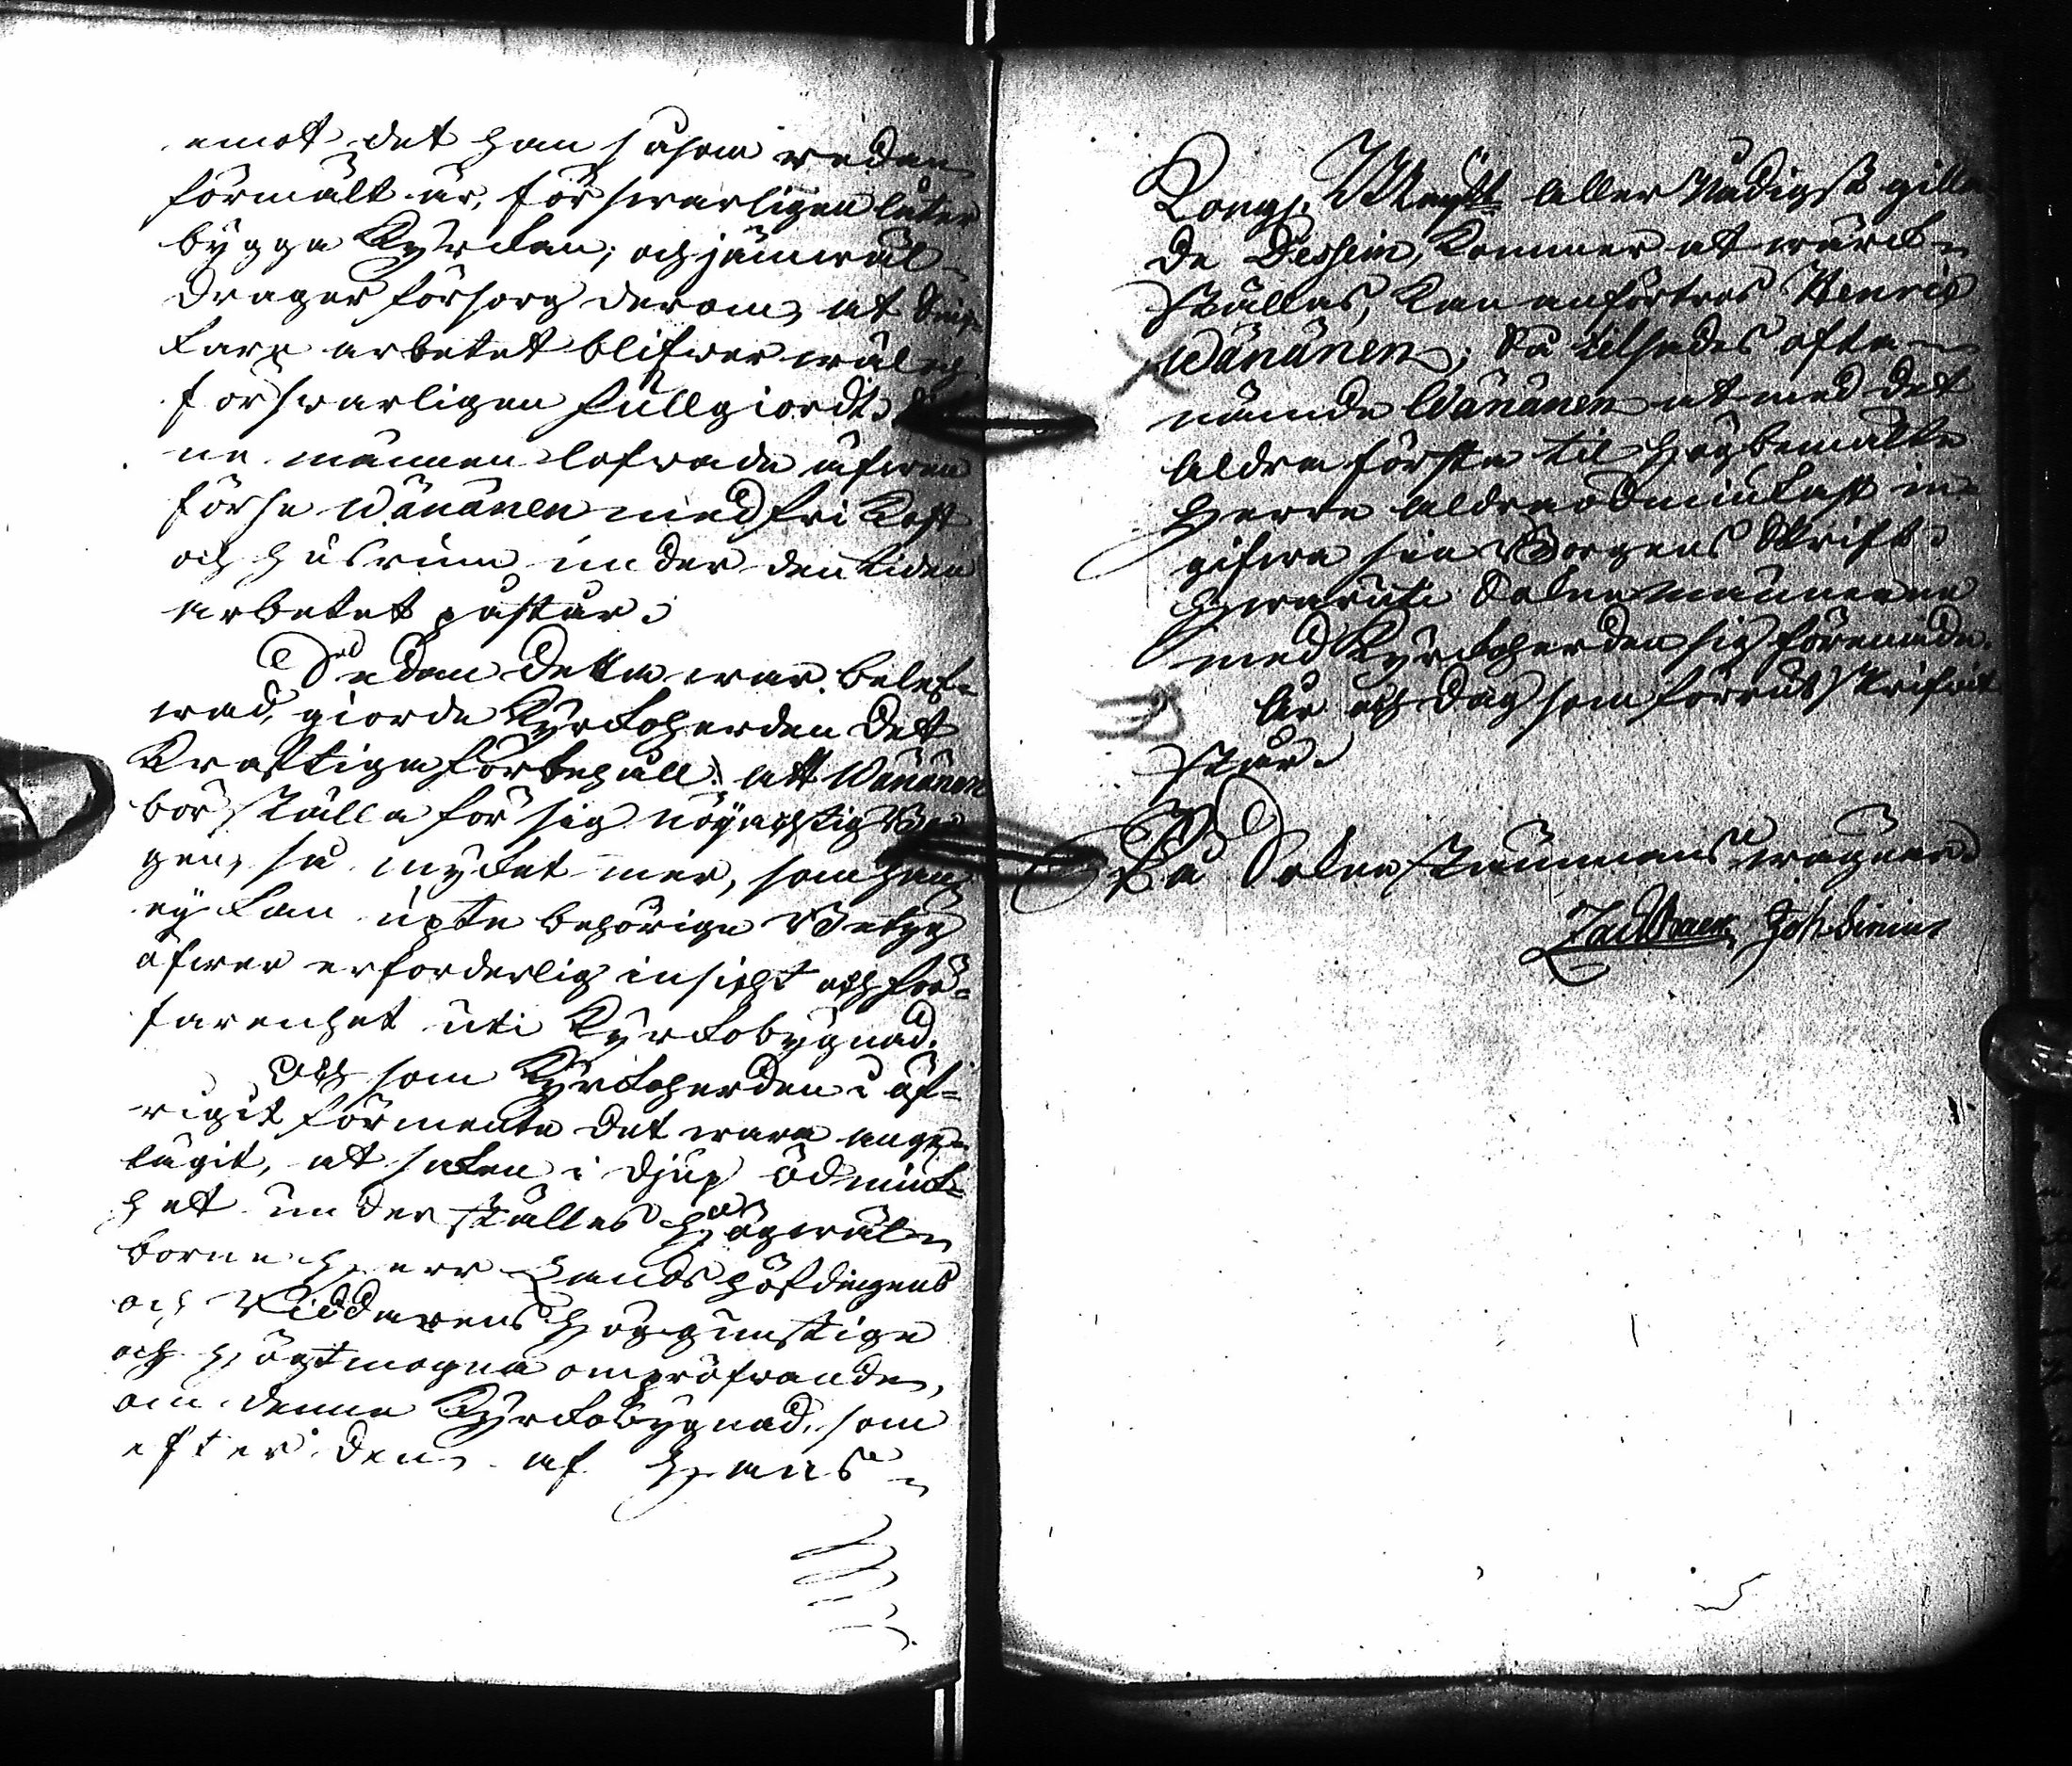 emot det han såsom redan
förmält är, förswarligen låter
bygga Kyrckan; och jämwäl
drager försorg derom, at Snic-
kare arbetet blifwer wäl och
förswarligen fullgiordt.
ne männen lofwade äfwen
förse Wänänen med fri Kost
och husrum under den tiden
arbetet påstår.
Sedan detta war belef-
wad, giorde Kyrckoherden det
Kraftiga förbehåll, att Wänänen
bör ställa för sig nöyachtig Bor-
gen, så mycket mer, som han
ey kan upte behörige Betyg
öfwer erforderlig insicht och för-
farenhet uti Kyrckobygnad.
Och som Kyrckoherden i öf-
rigit förmente det wara ange-
lägit, at saken i djup ödmiuk-
het underställes Högwäl-
borne Herr Landshöfdingens
och Riddarens Höggunstige
och Högtmogna ompröfwande,
om denna Kyrckobygnad, som
efter den af Hans
Kongl. Maystt Aller Nådigst gilla-
de Dessein, kommer at wärck-
ställas, kan anförtros Henric
Wänänen; Så tilsades ofta-
nämde Wänänen at med det
aldra första til Högbemälte
Herre aldraödmiukast in-
gifwa sin Borgens Skrift.
Hwaruti Soknemännerne
med Kyrckoherden sig förenade.
År och dag som förut skrifwit
står.
På Sokne stämmans wägnar.